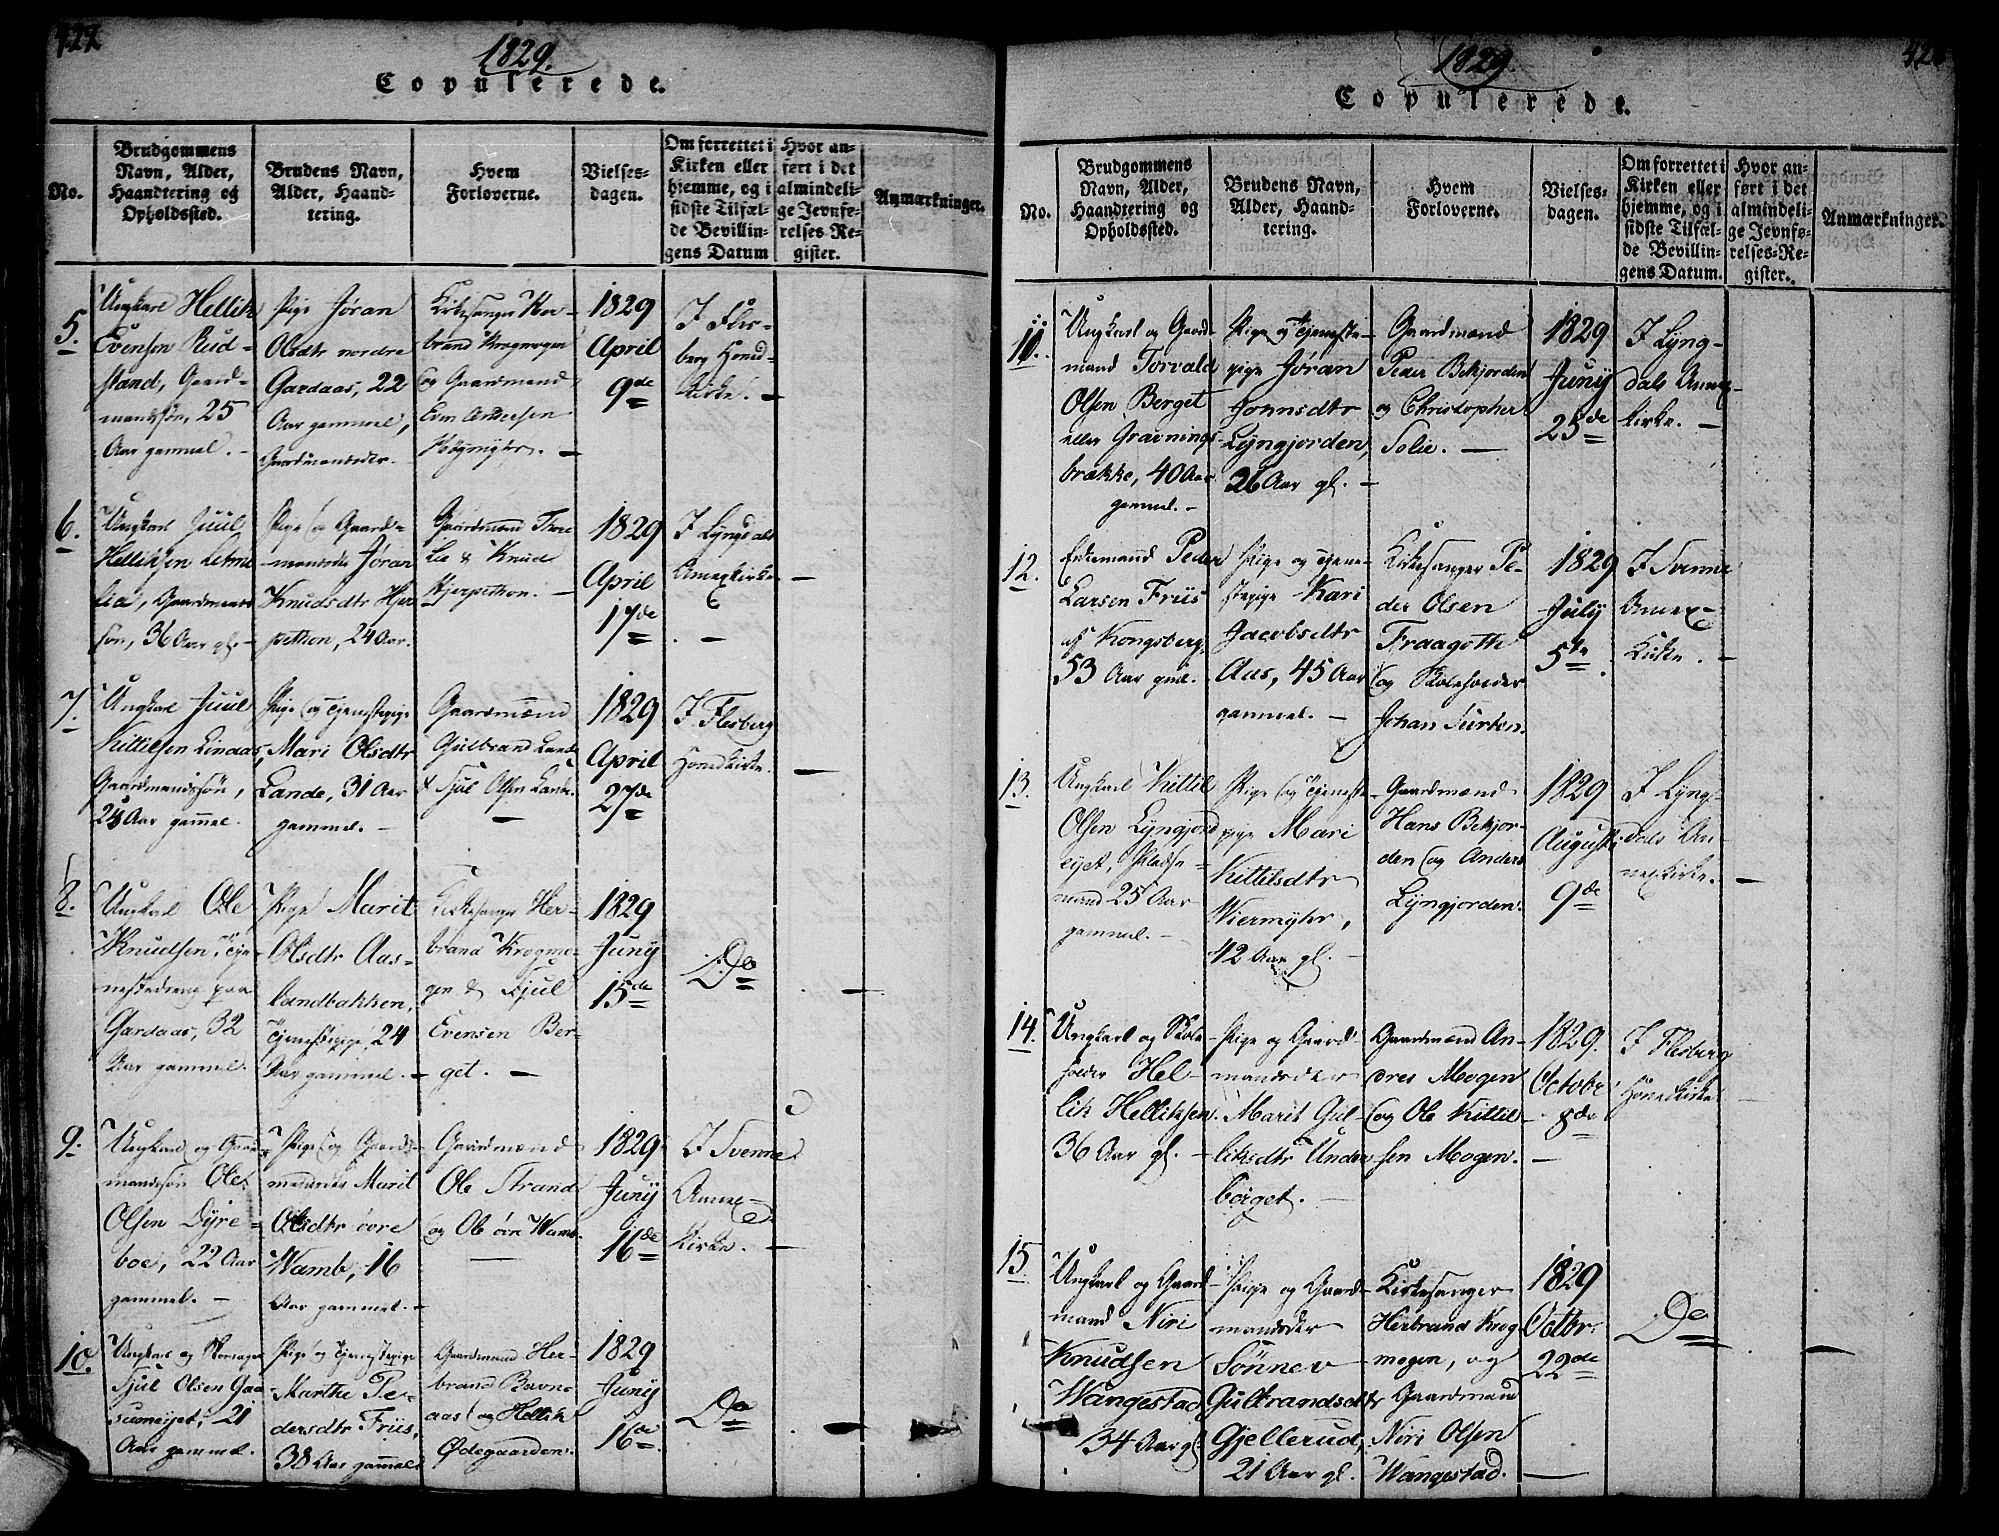 427
1829.
Copulerede.
No.
Brudgommens
Navn, Alder,
Haandtering og
Opholdssted.
Brudens Navn,
Alder, Haand-
tering.
Hvem
Forloverne.
Vielses-
dagen.
Om forrettet i
Kirken eller
hjemme, og i
sidste Tilfæl-
de Bevillin-
gens Datum
Hvor an-
ført i det
almindeli-
ge Jevnfø-
relses-Re-
gister.
Anmærkninger.
5.
Ungkarl Hellik
Evensen Rud-
stand, Gaard-
mandssøn, 25
Aar gammel. -
Pige Jøran
Olsdtr nordre
Gardaas, 22
Aar gammel,
Gaardmandsder.
Kirkesanger Her-
brand Krogmogen
og Gaardmand
Even Andersen
1829
April
9de
I Fles-
berg Hoved-
kirke. -
6.
Ungkarl Juul
Helliksen
lia, Gaardmands
søn, 36 Aar gl. -
Pige og Gaard-
mandsder Jøran
Knudsdtr Hjer
pethon, 24 Aar.
Gaardmænd Thore
Lie & Knud
Hjerpethon. -
1829
April
17de
I Lyngdals
Annexkirke
. -
7.
Ungkarl Juul
Kittilsen Linaas,
Gaardmandssøn,
28 Aar gammel.
Pige og Tjenstepige
Mari Olsdtr
Lande, 31 Aar
gammel. -
Gaardmænd
Gulbrand Lande
& Tjul Olsen Lande.
-
1829
April
27de
I Flesberg
Hovedkirke. -
8.
Ungkarl Ole
Knudsen, Tje-
nestedreng paa
Gardaas, 32
Aar gammel.
Pige Marit
Olsdtr Aas-
landbakken,
Tjenestepige, 24
Aar gammel. -
Kirkesanger Her-
brand Krogmo-
gen & Tjul
Evensen Ber-
get. -
1829
Juny
15de
Do
-
9.
Ungkarl og Gaard
mandssøn Ole
Olsen Dyre-
boe, 22 Aar
gammel. -
Pige og Gaards
mandsder Marit
Olsdtr øvre
Wamb, 16
Aar gammel. -
Gaardmænd
Ole Strand
og Ole øvre Wamb.
-
1829
Juny
16de
I Svenne
Annex-
Kirke. -
10.
Ungkarl og
Tjul Olsen Gaa
sumeyet, 21
Aar gammel.
Pige og Tjenestepige
Marthe Pe-
dersdtr Friis,
38 Aar gammel
Gaardmænd Her-
brand Bævre-
aas og Hellik
Ødegaarden.
1829
Juny
16de
Do
-
1829.
Copulerede.
No.
Brudgommens
Navn, Alder,
Haandtering og
Opholdssted.
Brudens Navn,
Alder, Haand-
tering.
Hvem
Forloverne.
Vielses-
dagen.
Om forrettet i
Kirken eller
hjemme, og i
sidste Tilfæl-
de Bevillin-
gens Datum.
Hvor an-
ført i det
almindeli-
ge Jevnfø-
relses-Re-
gister.
Anmærkninger.
11.
Ungkarl og Gaard-
mand Torvald
Olsen Berget
eller Gravnings-
brække, 40 Aar
gammel. -
Pige og Tjenste-
pige Jøran
Jonnsdtr
Lyngjorden,
26 Aar gl. -
Gaardmænd
Peder Bekjorden
og Christopher
Solie. -
1829
Juny
25de
I Lyng-
dals Annex-
kirke. -
12.
Enkemand Peder
Larsen Friis
af Kongsberg,
53 Aar gml.
Pige og Tjene-
stepige Kari
Jacobsdtr
Aas, 45 Aar
gammel. -
Kirkesanger Pe-
der Olsen
Fraagotte
og Skoleholder
Johan Turton.
1829
July
5te
I Svenne
Annex-
Kirke. -
13.
Ungkarl Kittil
Olsen Lyngjord
eyet, Pladse-
mand 25 Aar
gammel. -
Pige og Tjenste-
pige Mari
Kittilsdtr
Wiermyhr,
42 Aar gl. -
Gaardmænd
Hans Bekjor-
den og Anders
Lyngjorden.
1829
August
9de
I Lyng-
dals An-
nexkirke. -
14.
Ungkarl og Skole
holder Hel-
lik Helliksen
36 Aar gl. -
Pige og Gaard-
mandsder
Marit Gul-
liksdtr Under
berget. -
Gaardmænd An-
dres Mogen
og Ole Kittil-
sen Mogen.
1829.
Octobr
8de
-
I Flesberg
Hovedkirke
15
Ungkarl og Gaard-
mand Niri
Knudsen
Wangestad
34 Aar gl.
Pige og Gaard-
mandsder
Sønnev
Gulbrandsdtr
Gjellerud,
21 Aar gl.
Kirkesanger
Herbrand Krog
mogen, og
Gaardmand
Niri Olsen
Wangestad.
1829
Octbr.
22de
-
Do
-